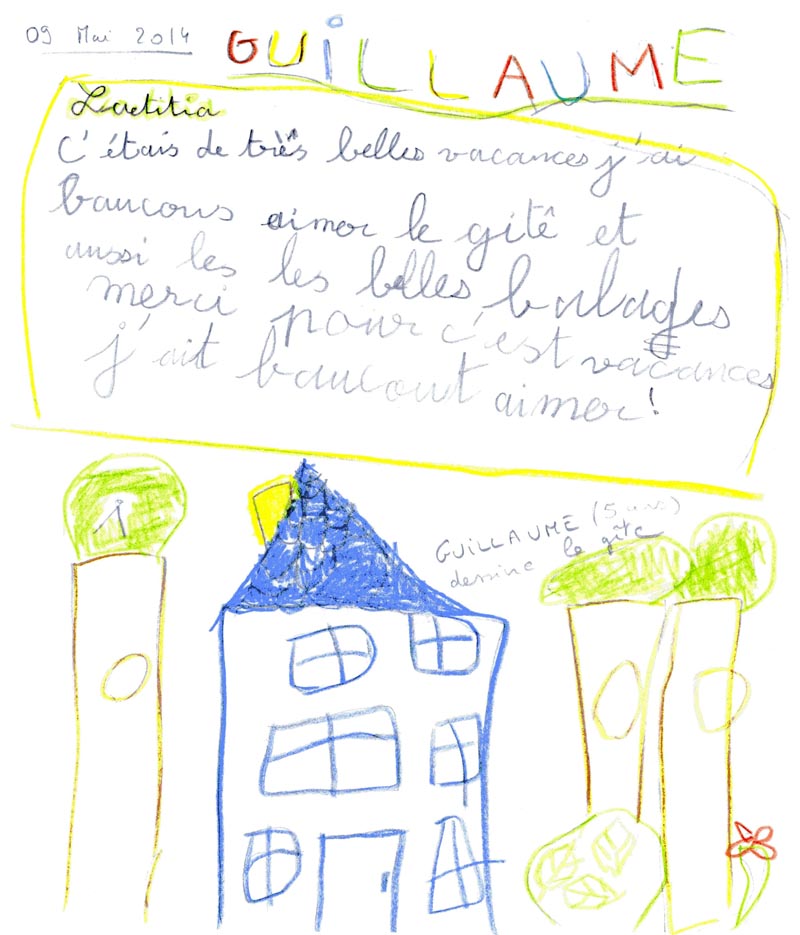 09 Mai 2014
GUILLAUME
Laetitia
C'étais de très belles vacances j'ai
baucous aimer le gitê et
aussi les les belles balages
merci pour c'est vacances
j'ait baucout aimer!
GUILLAUME (5 ans)
dessine le gîte